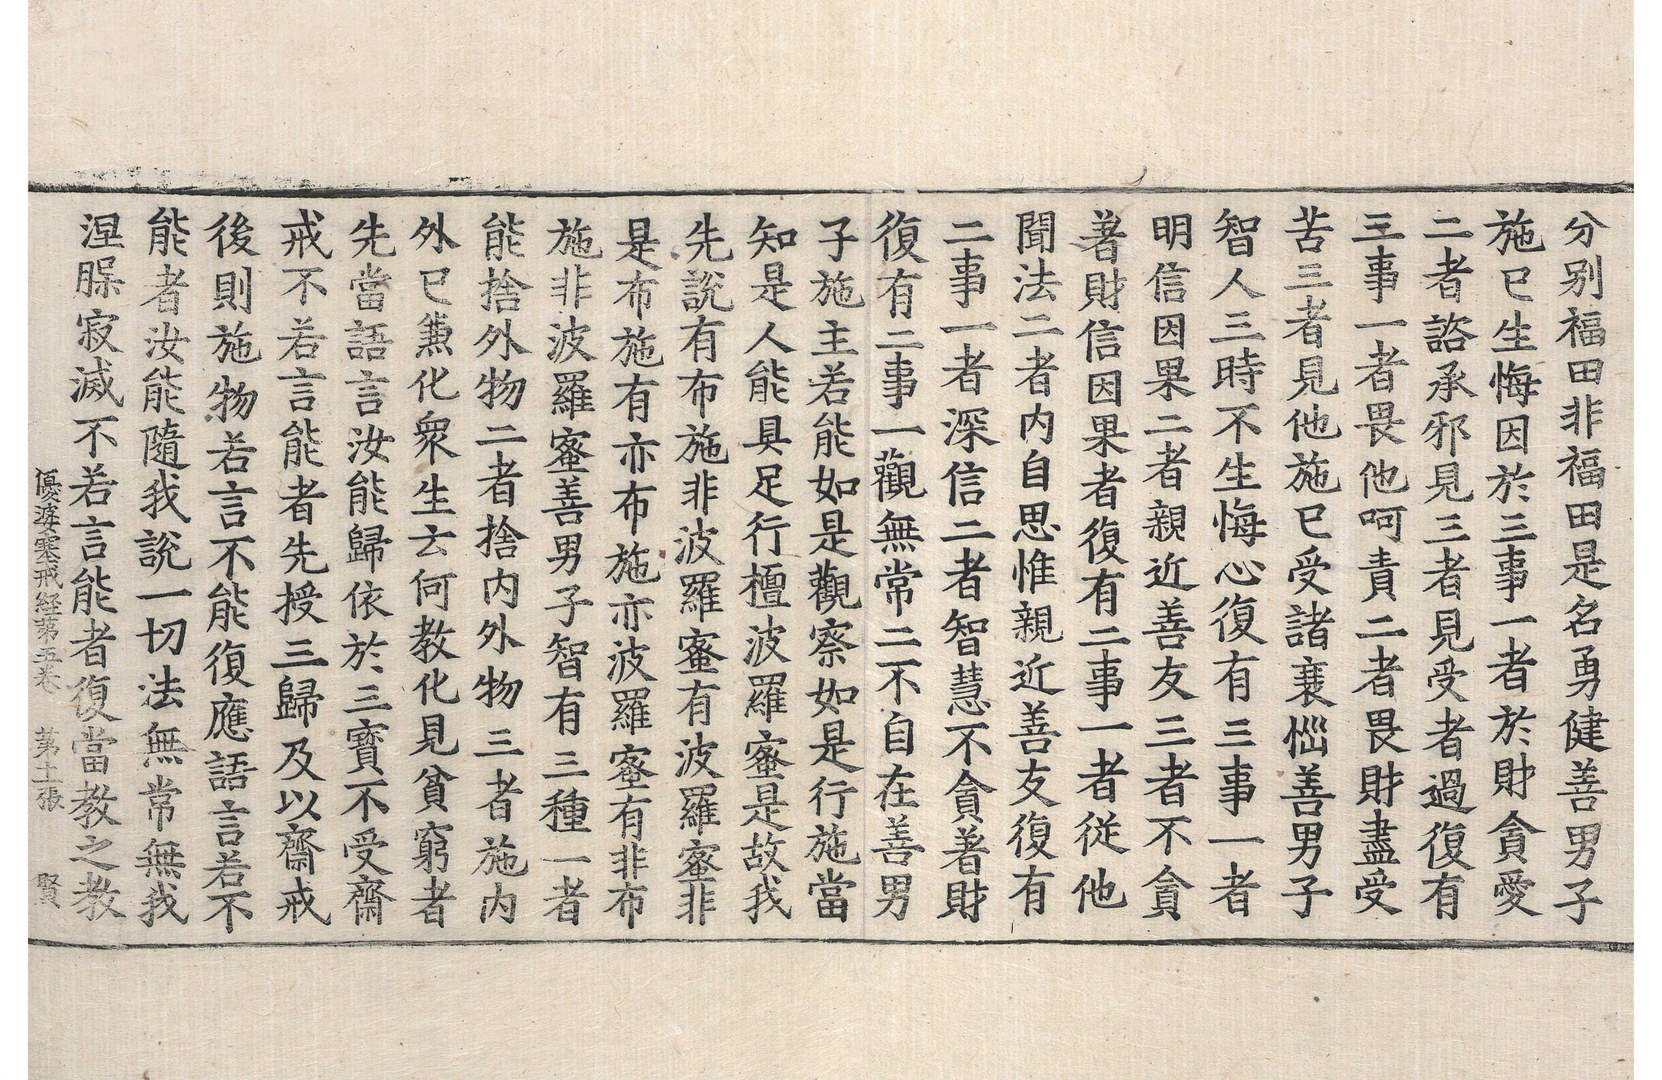 分别福田非福田是名勇健善男子
施已生悔因於三事一者於財貪愛
二者諮承邪見三者見受者過復有
三事一者畏他呵責二者畏財盡受
苦三者見他施已受諸衰惱善男子
智人三時不生悔心復有三事一者
明信因果二者親近善友三者不貪
著財信因果者復有二事一者從他
聞法二者内自思惟親近善友復有
二事一者深信二者智慧不貪著財
復有二事一觀無常二不自在善男
子施主若能如是觀察如是行施當
知是人能具足行檀波羅蜜是故我
先說有布施非波羅蜜有波羅蜜非
是布施有亦布施亦波羅蜜有非布
施非波羅蜜善男子智有三種一者
能捨外物二者捨内外物三者施内
外已兼化眾生云何教化見貧窮者
先當語言汝能歸依於三寶不受齋
戒不若言能者先授三歸及以齋戒
後則施物若言不能復應語言若不
能者汝能隨我說一切法無常無我
涅槃寂滅不若言能者復當教之教
優婆塞戒経苐五卷 苐十一張 賢